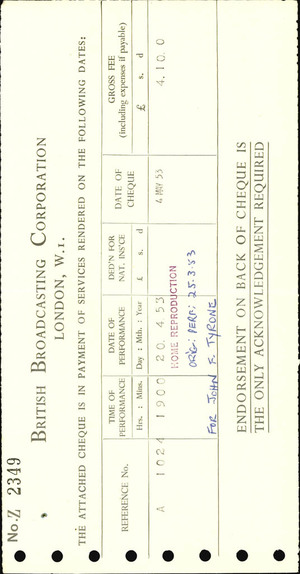 No. Z 2349
BRITISH BROADCASTING CORPORATION
LONDON, W.1.
THE ATTACHED CHEQUE IS IN PAYMENT OF SERVICES RENDERED ON THE FOLLOWING DATES:
REFERENCE No. TIME OF PERFORMANCE DATE OF PERFORMANCE DED'N FOR NAT. INS'CE DATE OF CHEQUE GROSS FEE (including expenses if payable)
Hrs. : Mins. Day : Mth. : Year £ s. d £ s. d
A 1024 1900 20 4 53 4 MAY 53 4.10.0
HOME REPRODUCTION
ORIG: PERF: 25.3.53
FOR JOHN F. TYRONE
ENDORSEMENT ON BACK OF CHEQUE IS
THE ONLY ACKNOWLEDGEMENT REQUIRED